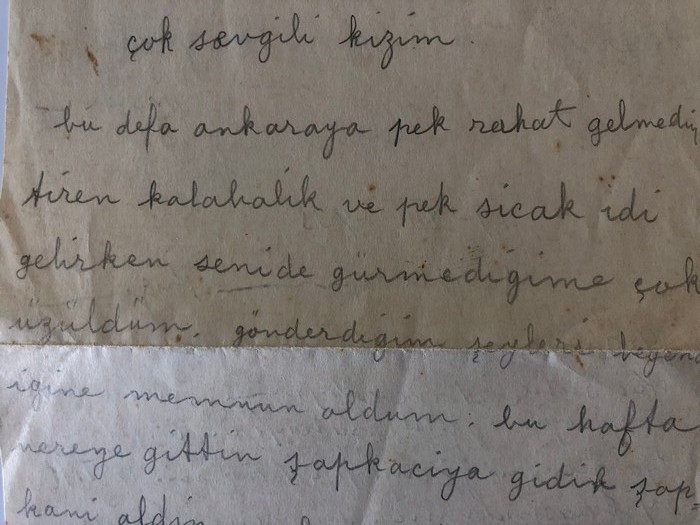 çok sevgili kizim.
bu defa ankaraya pek rahat gelmedim
tiren kalabalik ve pek sicak idi
gelirken senide gürmediğime çok
üzüldüm. gönderdiğim şeyleri beyend
iğine memnun oldum. bu hafta
nereye gittin şapkaciya gidik şap-
kani aldin